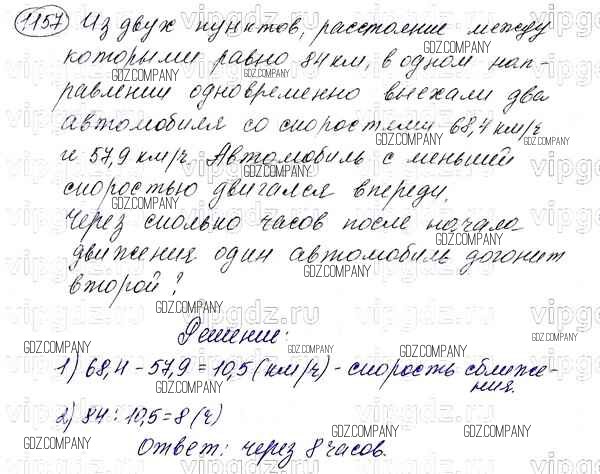 1157 Из двух пунктов, расстояние между
которыми равно 84 км, в одном нап-
равлении одновременно выехали два
автомобиля со скоростями 68,4 км/ч
и 57,9 км/ч. Автомобиль с меньшей
скоростью двигался впереди.
Через сколько часов после начала
движения один автомобиль догонит
второй?
Решение:
1) 68,4 - 57,9 = 10,5 (км/ч) - скорость сближе-
ния.
2) 84 : 10,5 = 8 (ч)
Ответ: через 8 часов.
GDZ.COMPANY
vipgdz.ru